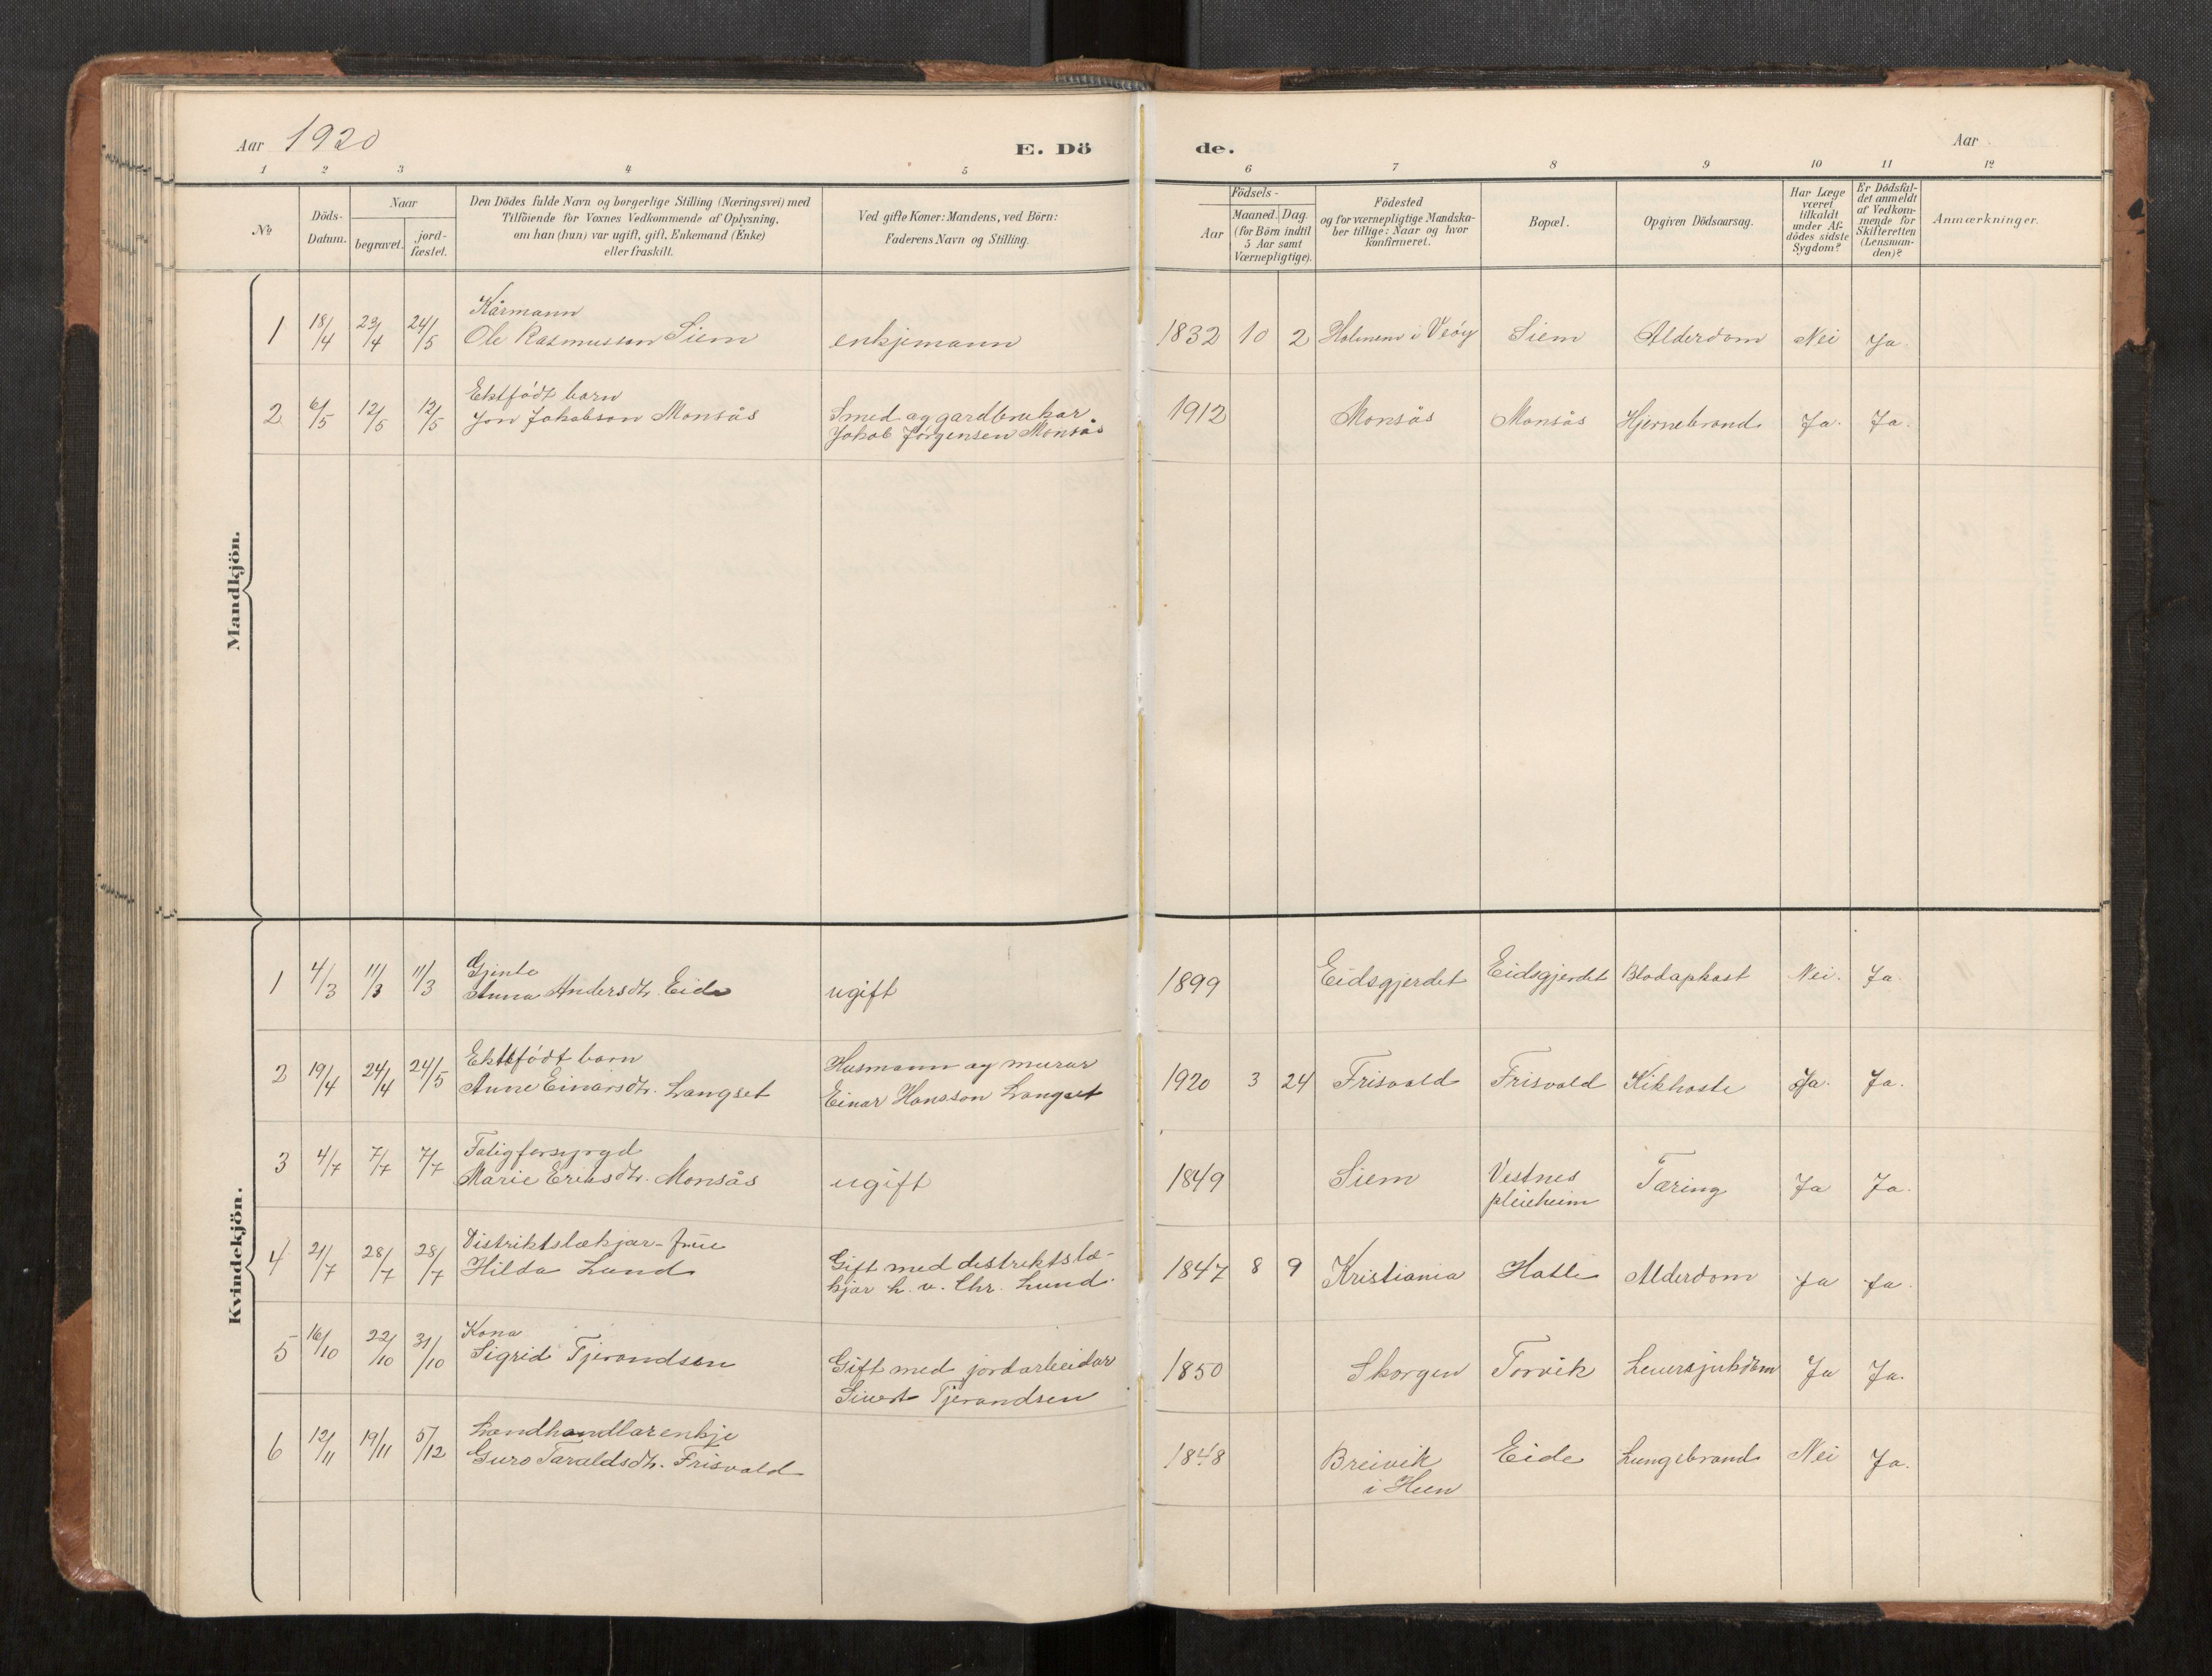 Aar 1920
E. Döde.
Aar
1 2 3 4 5 6 7 8 9 10 11 12
No
Döds-Datum.
Naar
begravet.
jord-fæstet.
Den Dödes fulde Navn og borgerlige Stilling (Næringsvei) med
Tilföiende for Voxnes Vedkommende af Oplysning,
om han (hun) var ugift, gift, Enkemand (Enke)
eller fraskilt.
Ved gifte Koner: Mandens, ved Börn:
Faderens Navn og Stilling.
Födsels-
Aar
Maaned. Dag.
(for Börn indtil
5 Aar samt
Værnepligtige).
Födested
og for værnepligtige Mandska-
ber tillige: Naar og hvor
konfirmeret.
Bopæl.
Opgiven Dödsaarsag.
Har Læge
været
tilkaldt
under Af-
dödes sidste
Sygdom?
Er Dödsfal-
det anmeldt
af Vedkom-
mende for
Skifteretten
(Lensman-
den)?
Anmærkninger.
Mandkjön.
Kårmann
1 18/4 23/4 24/5 Ole Rasmusson Siem enkjemann 1832 10 2 Holmem i Veöy Siem Alderdom Nei Ja
Ektfödt barn
2 6/5 12/5 12/5 Jon Jakobson Monsås Smed og gardbrukar 1912 Monsås Monsås Hjernebrand Ja. Ja.
Jakob Jörgensen Monsås
Kvindekjön.
Gjenta
1 4/3 11/3 11/3 Anna Andersdtr. Eide ugift 1899 Eidsgjerdet Eidsgjerdet Blodapkast Nei. Ja.
Ektefödt barn
2 19/4 24/4 24/5 Anne Einarsdtr. Langset Husmann og murar 1920 3 24 Frisvald Frisvald Kikhoste Ja. Ja.
Einar Hansson Langset
Fatigforsyrgd
3 4/7 7/7 7/7 Marie Eriksdtr. Monsås ugift 1849 Siem Vestnes Tæring Ja Ja.
pleieheim
Distriktslækjar-frue
4 21/7 28/7 28/7 Hilda Lund Gift med distriktslæ- 1847 8 9 Kristiania Hatle Alderdom Ja Ja.
kjar h. v. Chr. Lund.
Kona
5 16/10 22/10 31/10 Sigrid Tjerandsen Gift med jordarbeidar 1850 Skorgen Torvik Leversjukdom Ja Ja.
Sivert Tjerandsen
Landhandlarenkje
6 12/11 19/11 5/12 Guro Taraldsdtr. Frisvald 1848 Breivik Eide Lungebrand Nei Ja.
i Heen